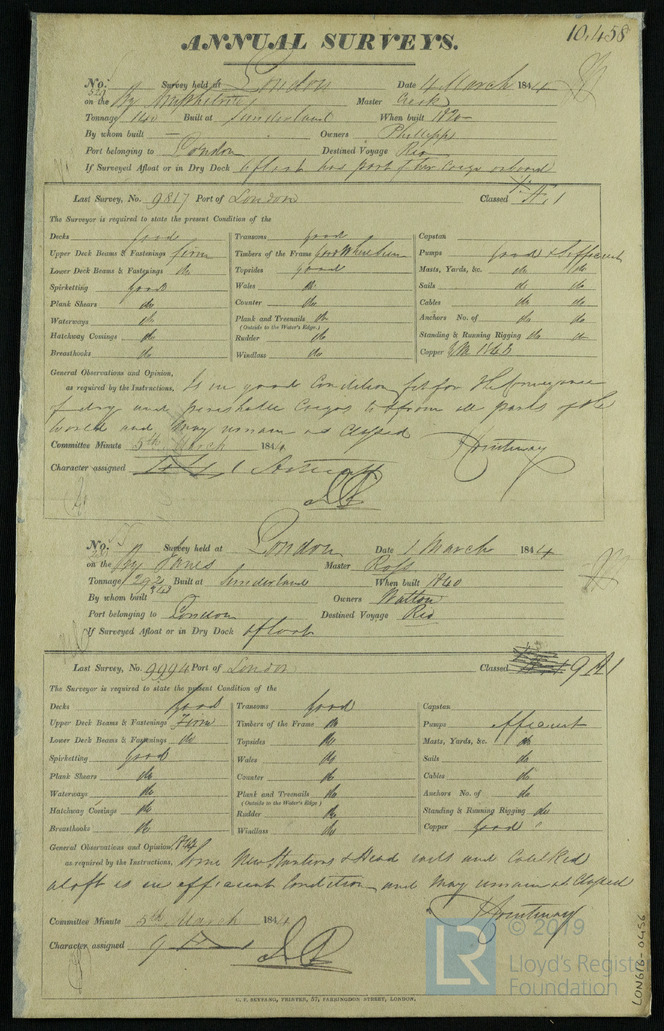 10,458
ANNUAL SURVEYS.
No. Survey held at London Date 4 March 1844
on the Bg Amphitrite Master
Tonnage 140 Built at Sunderland When built 1820
By whom built — Owners Phillipps
Port belonging to London Destined Voyage Rio
If Surveyed Afloat or in Dry Dock afloat has part of her cargo onboard
Last Survey, No. 9817 Port of London Classed Æ 1
The Surveyor is required to state the present Condition of the
Decks good
Upper Deck Beams & Fastenings firm
Lower Deck Beams & Fastenings do
Spirketting good
Plank Shears do
Waterways do
Hatchway Coamings do
Breasthooks do
Transoms good
Timbers of the Frame good where seen
Topsides good
Wales do
Counter do
Plank and Treenails do
(Outside to the Water's Edge.)
Rudder do
Windlass do
Capstan
Pumps good & efficient
Masts, Yards, &c. do do
Sails do do
Cables do do
Anchors No. of do do
Standing & Running Rigging do do
Copper YM 1843
General Observations and Opinion,
as required by the Instructions, Is in good Condition fit for the conveyance
of dry and perishable Cargos to & from all parts of the
World and may remain as Classed
Committee Minute 5th March 1844
Character assigned Æ 1
No. Survey held at London Date 1 March 1844
on the Bg Janes Master Ross
Tonnage 292 Built at Sunderland When built 1840
By whom built Owners Watton
Port belonging to London Destined Voyage Rio
If Surveyed Afloat or in Dry Dock afloat
Last Survey, No. 9994 Port of London Classed 9 A 1
The Surveyor is required to state the present Condition of the
Decks good
Upper Deck Beams & Fastenings Firm
Lower Deck Beams & Fastenings do
Spirketting good
Plank Shears do
Waterways do
Hatchway Coamings do
Breasthooks do
Transoms good
Timbers of the Frame do
Topsides do
Wales do
Counter do
Plank and Treenails do
(Outside to the Water's Edge)
Rudder do
Windlass do
Capstan
Pumps efficient
Masts, Yards, &c. do
Sails do
Cables do
Anchors No. of do
Standing & Running Rigging do
Copper good
General Observations and Opinion,
as required by the Instructions, Some New Stantions & Head rails and Caulked
aloft is in efficient Condition and may remain as Classed
Committee Minute 5th March 1844
Character assigned 9 A 1
© 2019
LR Lloyd's Register
Foundation
C. F. SEYFANG, PRINTER, 57, FARRINGDON STREET, LONDON.
LON616-0456